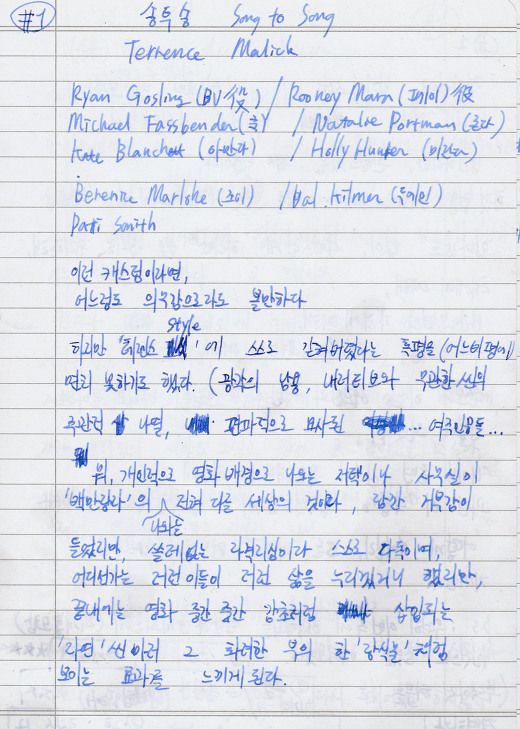 #1
송투송 Song to Song
Terrence Malick
Ryan Gosling (BV役) / Rooney Mara (페이)役
Michael Fassbender (쿡) / Natalie Portman (론다)
Kate Blanchett (아만다) / Holly Hunter (미란다)
Berenice Marlohe (조이) / Val Kilmer (두에인)
Patti Smith
이런 캐스팅이라면,
어느정도 의무감으로라도 볼만하다
하지만 '테렌스 style'에 스스로 갇혀버렸다는 혹평을 (어느비평에)
면치 못하기도 했다. (광각의 남용, 내러티브와 무관한 씬의
주관적 나열, 편파적으로 묘사된 ... 여주인공들...
뭐, 개인적으로 영화 배경으로 나오는 저택이나 사무실이
'백만장자'의 나와는 전혀 다른 세상의 것이라, 약간 거부감이
들었지만, 쓸데없는 자격지심이라 스스로 다독이며,
어디선가는 저런 이들이 저런 삶을 누리겠거니 했지만,
끝내에는 영화 중간 중간 감초처럼 삽입되는
'자연' 씬마저 그 화려한 부의 한 '장식물'처럼
보이는 효과를 느끼게 된다.